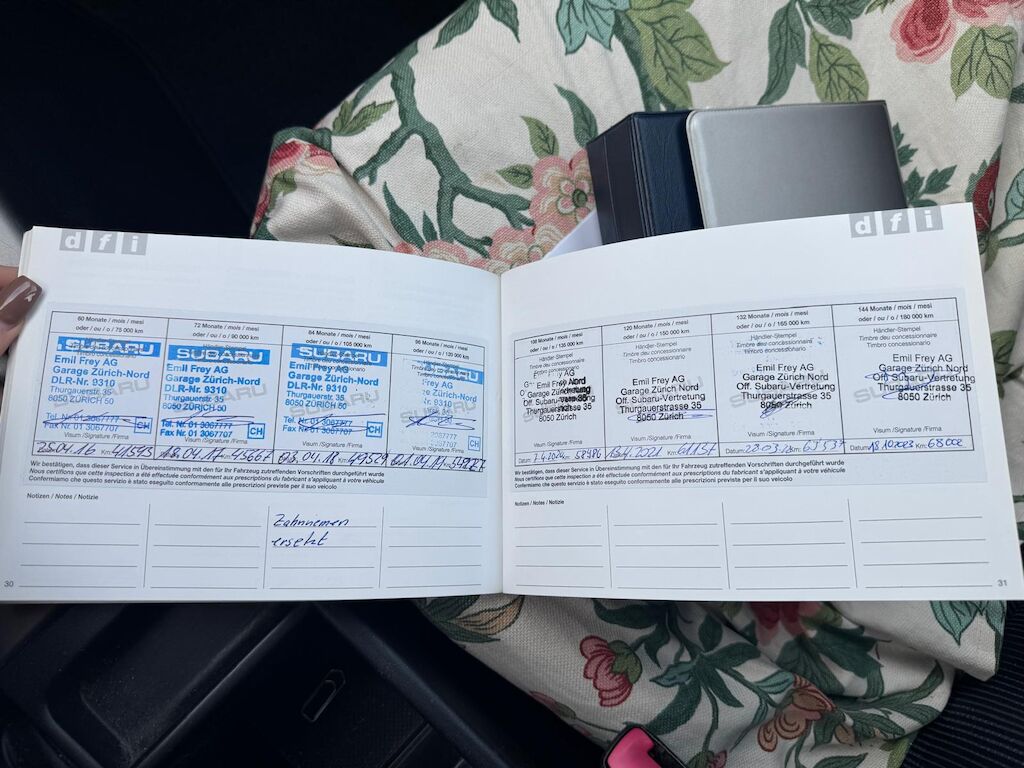 dfi
60 Monate / mois / mesi
oder / ou / o / 75 000 km
SUBARU
Emil Frey AG
Garage Zürich-Nord
DLR-Nr. 9310
Thurgauerstr. 35
8050 ZÜRICH 50
Tel. Nr. 01 3067777
Fax Nr. 01 3067707
CH
Visum /Signature /Firma
25.04.16 Km: 41595
72 Monate / mois / mesi
oder / ou / o / 90 000 km
SUBARU
Emil Frey AG
Garage Zürich-Nord
DLR-Nr. 9310
Thurgauerstr. 35
8050 ZÜRICH 50
Tel. Nr. 01 3067777
Fax Nr. 01 3067707
CH
Visum /Signature /Firma
18.04.17 43667
84 Monate / mois / mesi
oder / ou / o / 105 000 km
SUBARU
Emil Frey AG
Garage Zürich-Nord
DLR-Nr. 9310
Thurgauerstr. 35
8050 ZÜRICH 50
Tel. Nr. 01 3067777
Fax Nr. 01 3067707
CH
Visum /Signature /Firma
04.18 Km: 49529
96 Monate / mois / mesi
oder / ou / o / 120 000 km
Frey AG
CH
Visum /Signature /Firma
Wir bestätigen, dass dieser Service in Übereinstimmung mit den für Ihr Fahrzeug zutreffenden Vorschriften durchgeführt wurde
Nous certifions que cette inspection a été effectuée conformément aux prescriptions du fabricant s'appliquant à votre véhicule
Confermiamo che questo servizio è stato eseguito conformemente alle prescrizioni previste per il suo veicolo
Notizen / Notes / Notizie
Zahnriemen
ersetzt
30
dfi
108 Monate / mois / mesi
oder / ou / o / 135 000 km
Händler-Stempel
Emil Frey AG
Garage Zürich Nord
Off. Subaru-Vertretung
Thurgauerstrasse 35
8050 Zürich
Visum /Signature /Firma
Datum: Km: 58796
120 Monate / mois / mesi
oder / ou / o / 150 000 km
Händler-Stempel
Timbre du concessionnaire
Timbro concessionario
Emil Frey AG
Garage Zürich Nord
Off. Subaru-Vertretung
Thurgauerstrasse 35
8050 Zürich
Visum /Signature /Firma
2021 Km:
132 Monate / mois / mesi
oder / ou / o / 165 000 km
Händler-Stempel
Timbre du concessionnaire
Timbro concessionario
Emil Frey AG
Garage Zürich Nord
Off. Subaru-Vertretung
Thurgauerstrasse 35
8050 Zürich
Visum /Signature /Firma
Datum:
144 Monate / mois / mesi
oder / ou / o / 180 000 km
Händler-Stempel
Timbre du concessionnaire
Timbro concessionario
Emil Frey AG
Garage Zürich Nord
Off. Subaru-Vertretung
Thurgauerstrasse 35
8050 Zürich
Visum /Signature /Firma
Datum: Km: 68002
Wir bestätigen, dass dieser Service in Übereinstimmung mit den für Ihr Fahrzeug zutreffenden Vorschriften durchgeführt wurde
Nous certifions que cette inspection a été effectuée conformément aux prescriptions du fabricant s'appliquant à votre véhicule
Confermiamo che questo servizio è stato eseguito conformemente alle prescrizioni previste per il suo veicolo
Notizen / Notes / Notizie
31